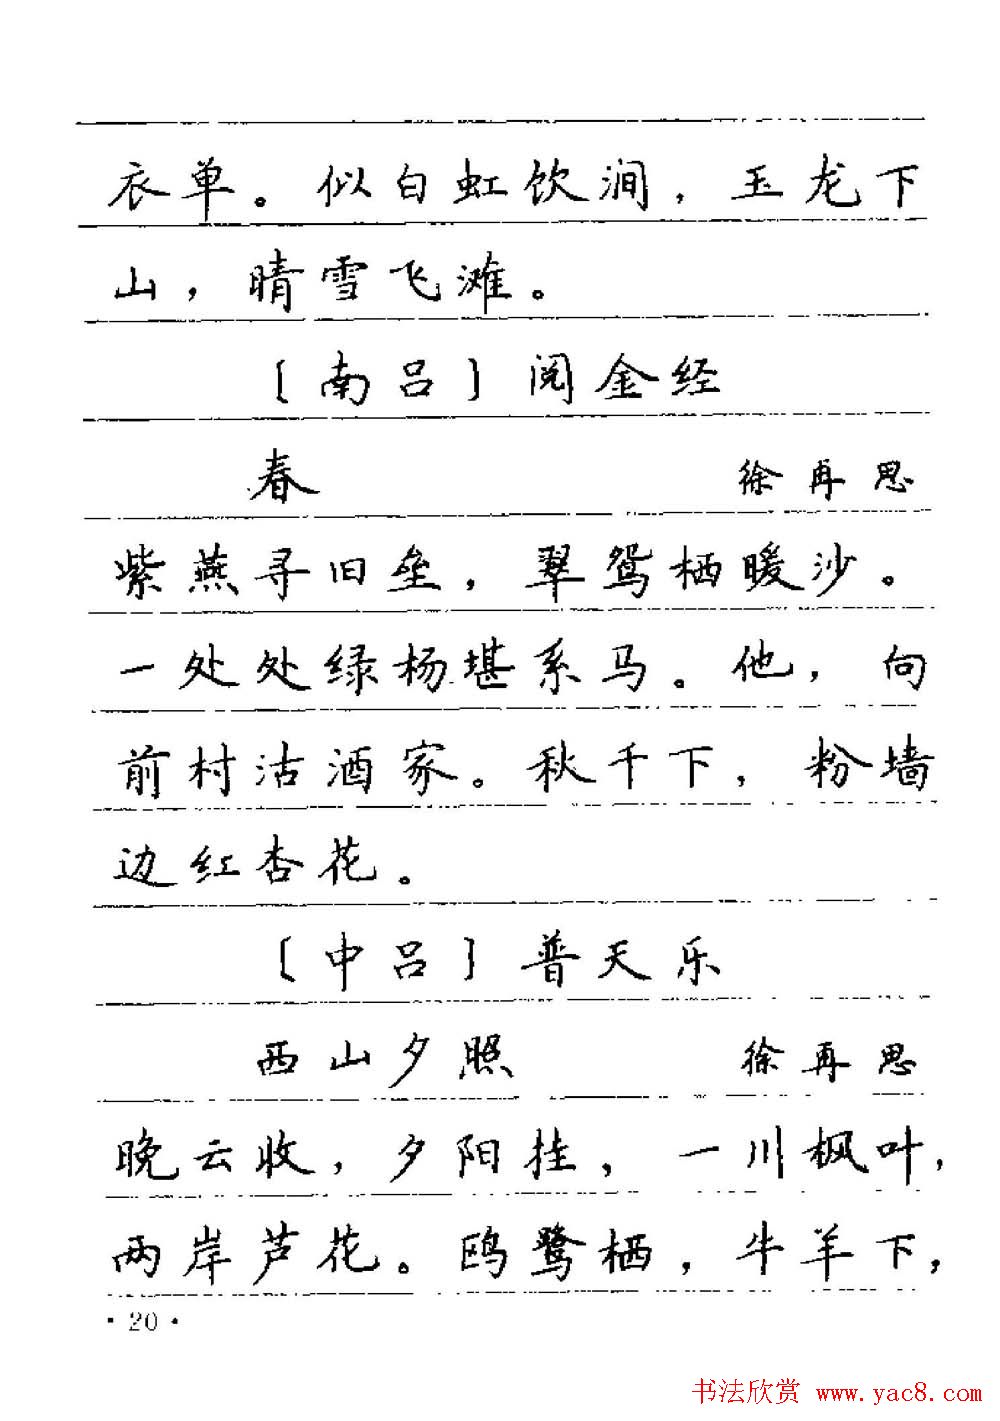 衣单。似白虹饮涧，玉龙下
山，晴雪飞滩。
〔南吕〕阅金经
春 徐再思
紫燕寻旧垒，翠鸳栖暖沙。
一处处绿杨堪系马。他，向
前村沽酒家。秋千下，粉墙
边红杏花。
〔中吕〕普天乐
西山夕照 徐再思
晚云收，夕阳挂，一川枫叶，
两岸芦花。鸥鹭栖，牛羊下，
·20·
书法欣赏 www.yac8.com